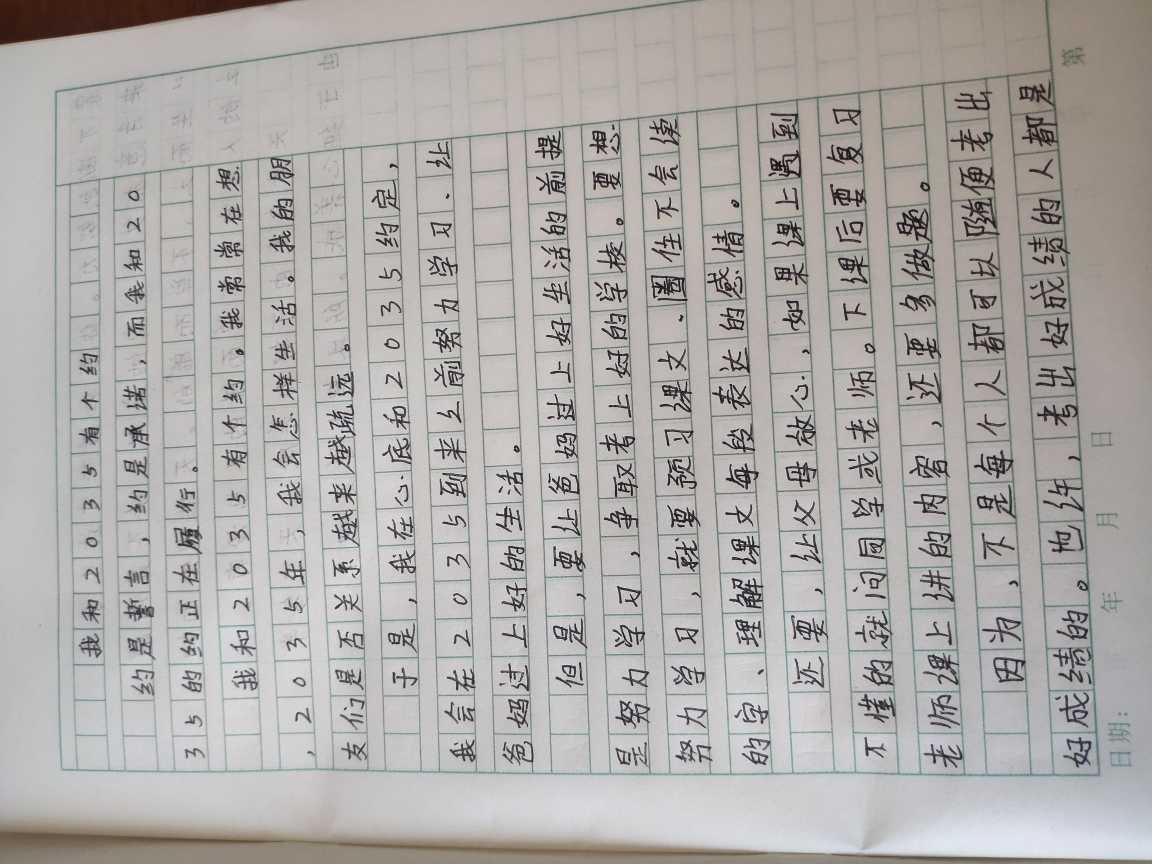 我和2035有个约
约是誓言，约是承诺，而我和20
35的约正在履行。
我和2035有个约。我常常在想
，2035年，我会怎样生活。我的朋
友们是否关系越来越疏远。
于是，我在心底和2035约定，
我会在2035到来之前努力学习、让
爸妈过上好的生活。
但是，要让爸妈过上好生活的前提
是努力学习，争取考上好的学校。要想
努力学习，就要预习课文、圈住不会读
的字、理解课文每段表达的感情。
还要，让父母放心，如果课上遇到
不懂的就问同学或老师。下课后要复习
老师课上讲的内容，还要多做题。
因为，不是每个人都可以随便考出
好成绩的。也许，考出好成绩的人都是
日期： 年 月 日
第